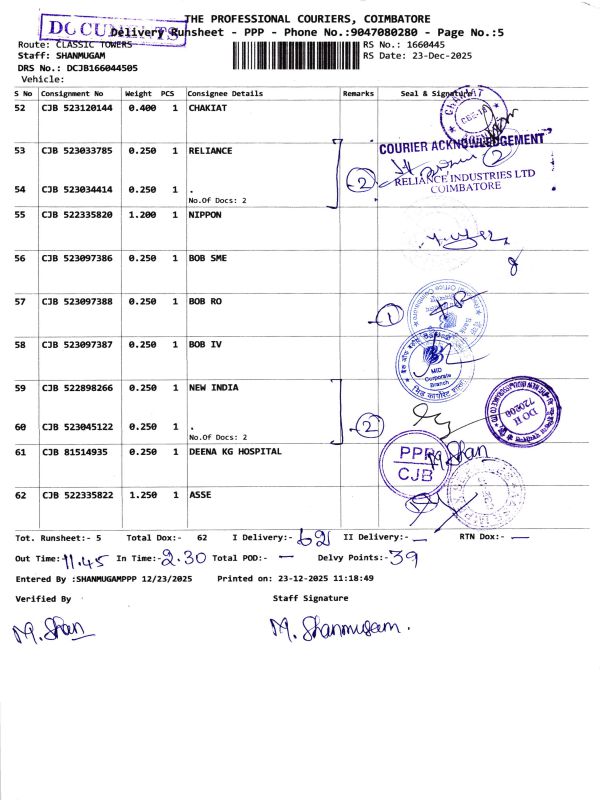 THE PROFESSIONAL COURIERS, COIMBATORE
DOCUMENTS
Delivery Runsheet - PPP - Phone No.:9047080280 - Page No.:5
Route: CLASSIC TOWERS
RS No.: 1660445
Staff: SHANMUGAM
RS Date: 23-Dec-2025
DRS No.: DCJB166044505
Vehicle:
S No Consignment No Weight PCS Consignee Details Remarks Seal & Signature
52 CJB 523120144 0.400 1 CHAKIAT
CHAKIAT
53 CJB 523033785 0.250 1 RELIANCE
COURIER ACKNOWLEDGEMENT
2
RELIANCE INDUSTRIES LTD
COIMBATORE
54 CJB 523034414 0.250 1 .
No.Of Docs: 2
2
55 CJB 522335820 1.200 1 NIPPON
56 CJB 523097386 0.250 1 BOB SME
57 CJB 523097388 0.250 1 BOB RO
1
58 CJB 523097387 0.250 1 BOB IV
MID
Corporate
Branch
59 CJB 522898266 0.250 1 NEW INDIA
DO II
720600
60 CJB 523045122 0.250 1 .
No.Of Docs: 2
2
61 CJB 81514935 0.250 1 DEENA KG HOSPITAL
PPP
CJB
62 CJB 522335822 1.250 1 ASSE
Tot. Runsheet:- 5 Total Dox:- 62 I Delivery:- 62 II Delivery:- — RTN Dox:- —
Out Time:- 11.45 In Time:- 2.30 Total POD:- — Delvy Points:- 39
Entered By :SHANMUGAMPPP 12/23/2025 Printed on: 23-12-2025 11:18:49
Verified By Staff Signature
M. Shan M. Shanmugam.